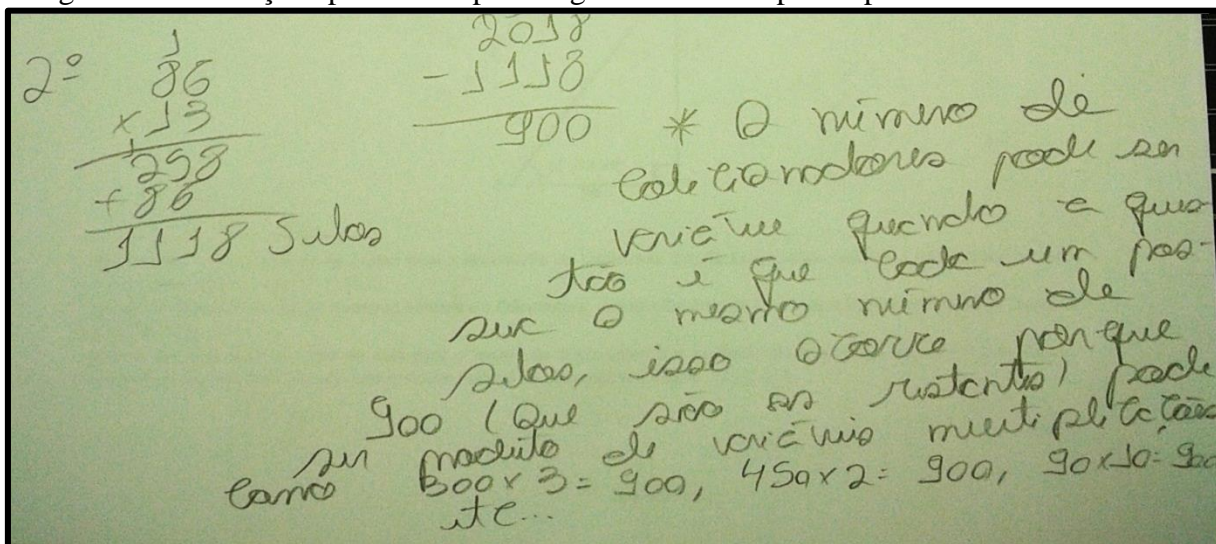 2º
1
86
x 13
258
+ 86
1118 Selos
2018
- 1118
900
* O número de
colecionadores pode ser
variável quando a ques
tão é que cada um pos-
sua o mesmo número de
selos, isso ocorre porque
900 (que são os restantes) pode
ser produto de variáveis multiplicações
como 300 x 3 = 900, 450 x 2 = 900, 90 x 10 = 900
etc...